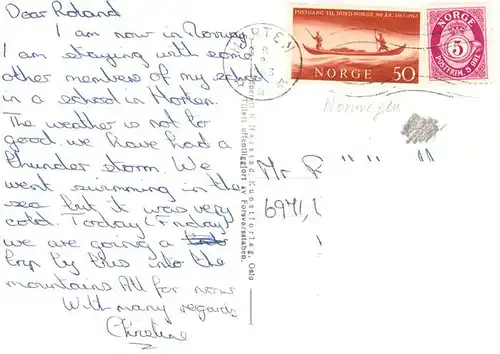 Dear Roland
I am now in Norway
I am staying with some
other members of my school
in a school in Horten.
The weather is not to
good. we have had a
thunder storm. We
went swimming in the
sea but it was very
cold. Today (Friday)
we are going a
trip by bus into the
mountains. All for now
With many regards
Christine
POSTGANG TIL NORD-NORGE 300 ÅR. 1663-1963
NORGE 50
NORGE
5
POSTFRIM. 5 ØRE
HORTEN
Norwegen
Mr R " " "
6971,1
Kunstforlag, Oslo
Tillatt offentliggjort av Forsvarsstaben.